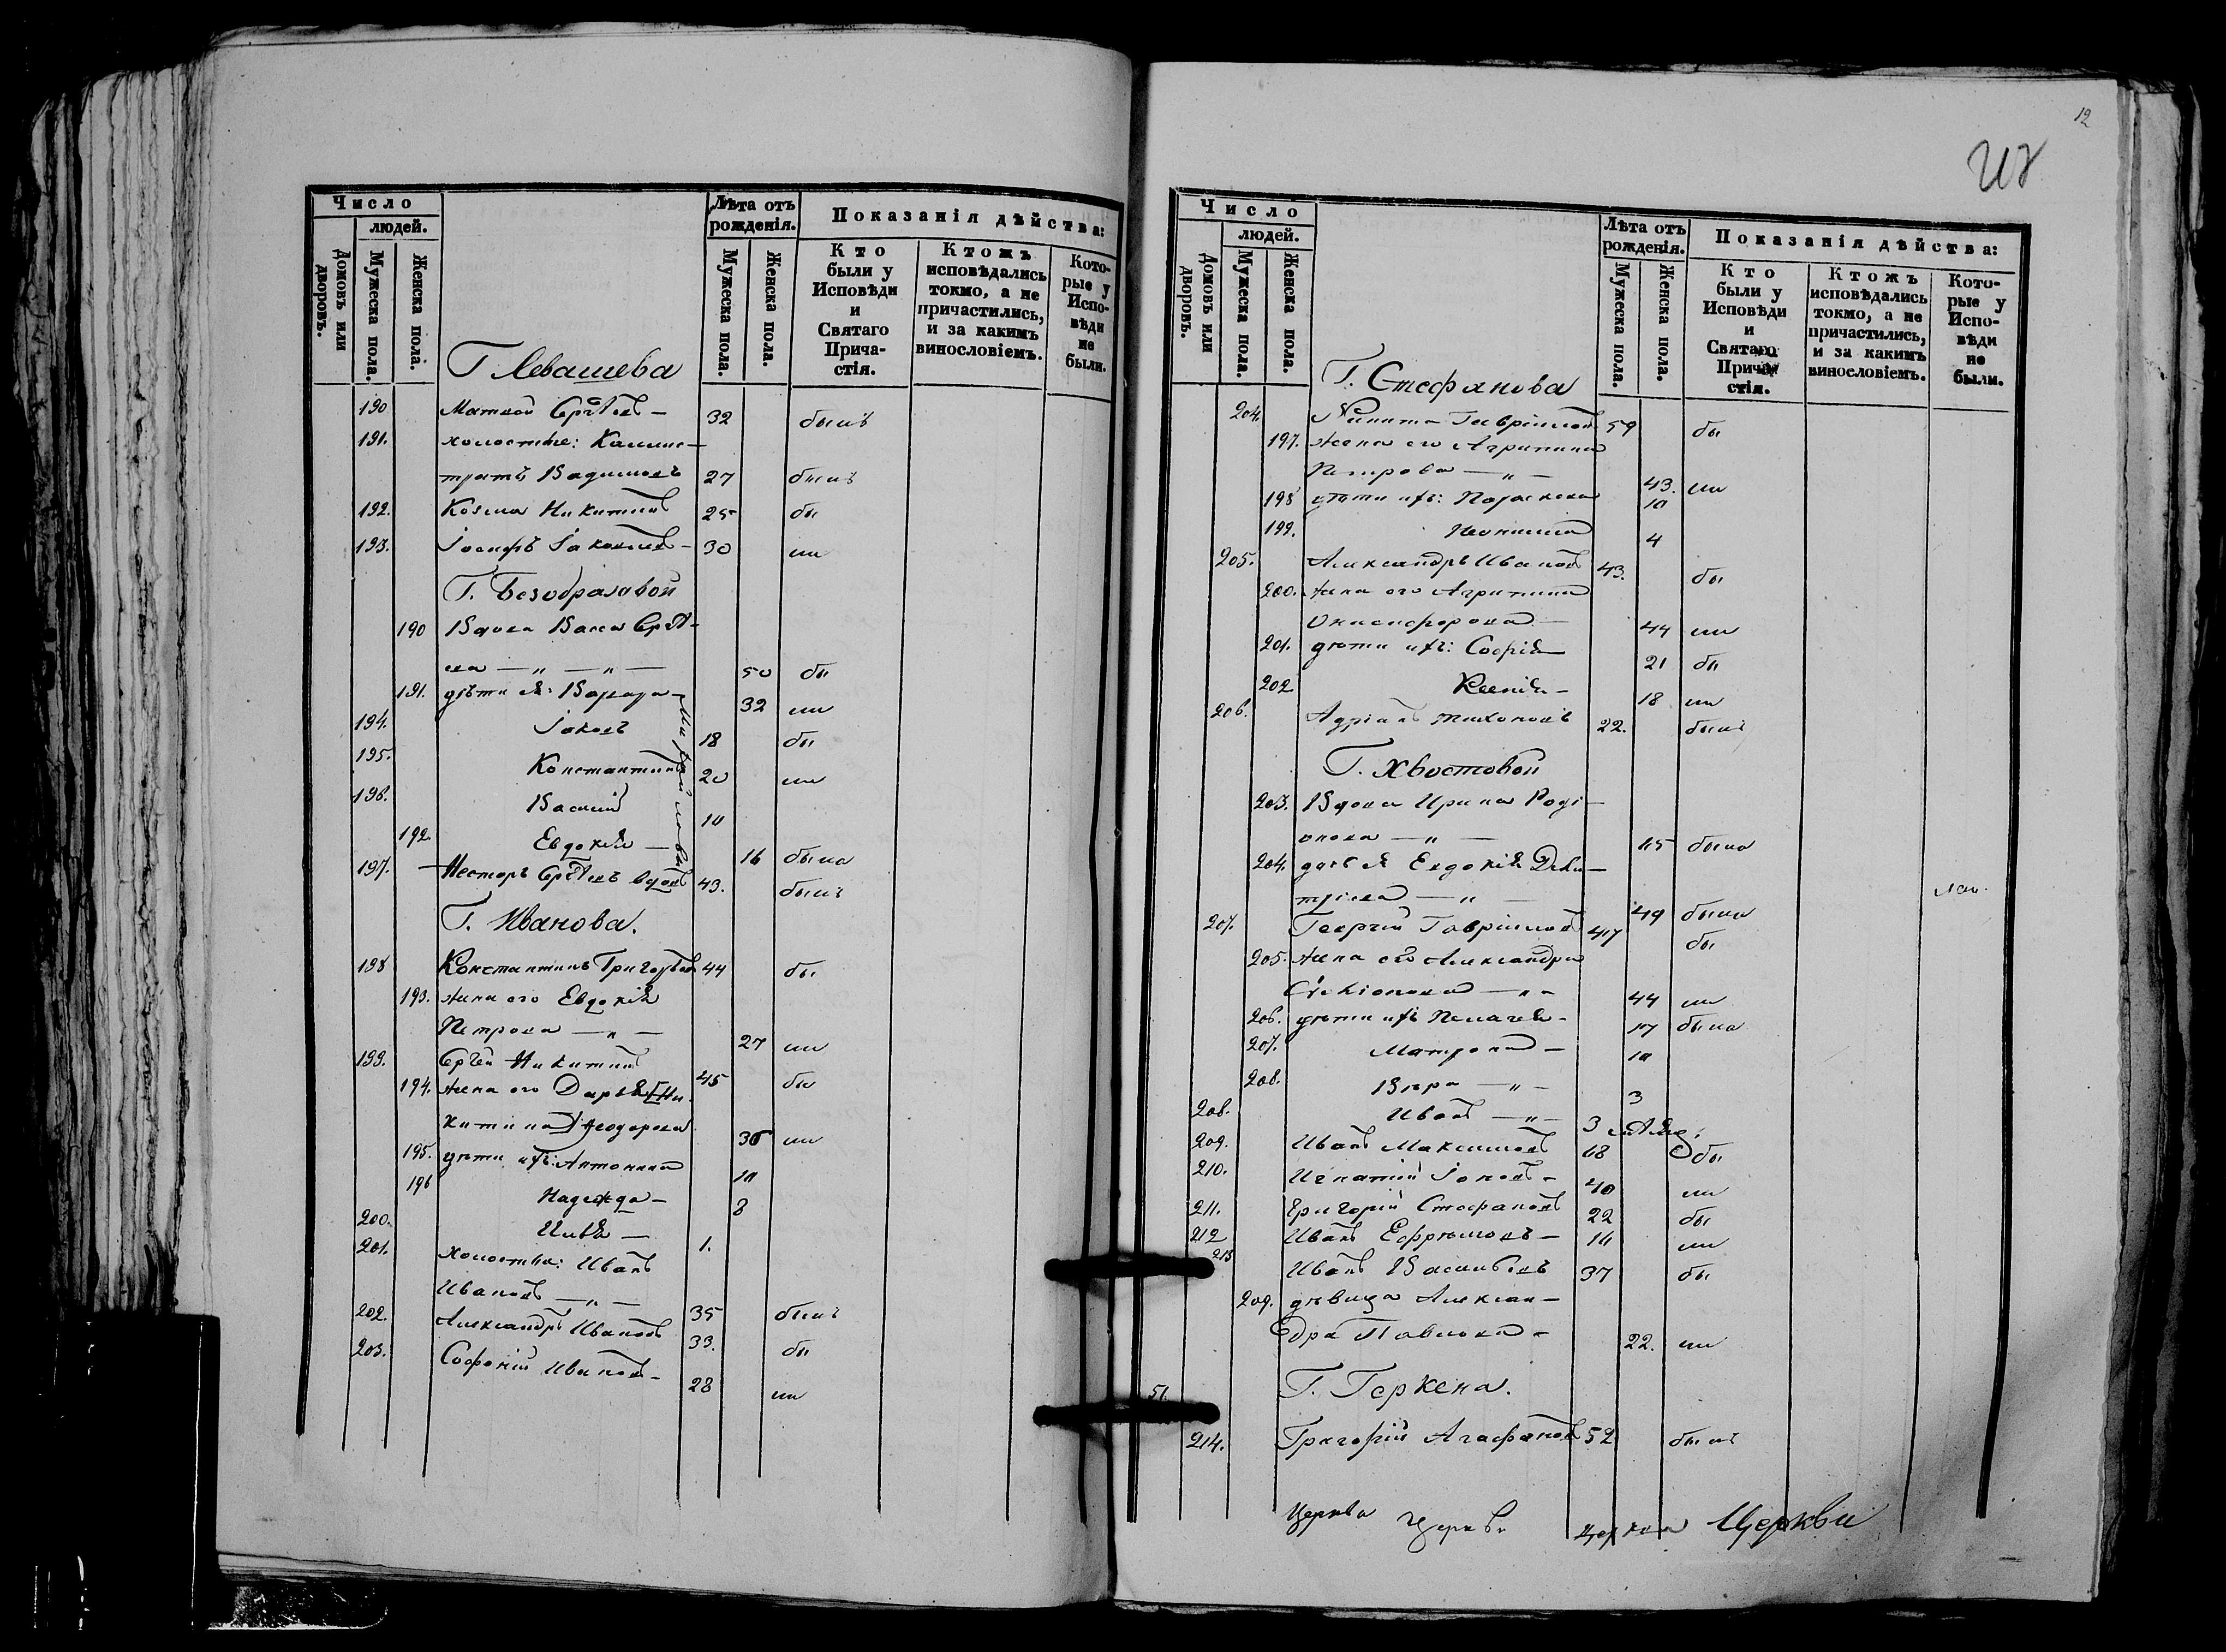 Число
людей.
Домовъ или дворовъ.
Мужеска пола.
Женска пола.
Лѣта отъ рожденія.
Мужеска пола.
Женска пола.
Показанія дѣйства:
Кто были у Исповѣди и Святаго Прича-стія.
Ктожъ исповѣдались токмо, а не причастились, и за какимъ винословіемъ.
Кото-рые у Испо-вѣди не были.
Г. Левашева
190 32 былъ
191. холостые: Калинс-
тратъ Вадимовъ 27 былъ
192. Козма Никитинъ 25 бы
193. Іосифъ Іаковлевъ - 30 ли
Г. Безобразавой
190 Вдова Васса
ва — „ — „ — 50 бы
191. дѣти ея: Варвара - 32 ли
194. Іаковъ 18 бы
195. Константинъ 20 ли
196. Василій 10
192. Евдокія — 16 была
197. Несторъ вдовъ 43. былъ
Г. Иванова.
198 Константинъ Григорьевъ 44 бы
193. жена его Евдокія
Петрова — „ — 27 ли
199. Сергѣй Никитинъ 45 бы
194. жена его Дарья [Ни-
китина] Ѳеодорова 36 ли
195. дѣти ихъ: Антонина 10
196 Надежда — 8
200. Илья — 1.
201. холостые: Иванъ
Ивановъ — „ — 35 былъ
202. Александръ Ивановъ 33. бы
203. Софоній Ивановъ - 28 ли
12
Число
людей.
Домовъ или дворовъ.
Мужеска пола.
Женска пола.
Лѣта отъ рожденія.
Мужеска пола.
Женска пола.
Показанія дѣйства:
Кто были у Исповѣди и Святаго Прича-стія.
Ктожъ исповѣдались токмо, а не причастились, и за какимъ винословіемъ.
Кото-рые у Испо-вѣди не были.
Г. Стефанова
204. Никита Гавріиловъ 59 бы
197. жена его Агрипина
Петрова — „ — 43. ли
198 дѣти ихъ: Параскева 10
199. Неонила 4
205. Александръ Ивановъ 43. бы
200. жена его Агрипина
Онисифорова — 44 ли
201. дѣти ихъ: Софія — 21 бы
202 Ксенія - 18 ли
206. Адріанъ Тихоновъ 22. былъ
Г. Хвостовой
203. Вдова Ирина Роді-
онова — „ — 65 была
204. дочь ея Евдокія Дими-
тріева — „ — 49 была
207. Георгій Гавріиловъ 47 бы
205. жена его Александра
Симеонова — „ - 44 ли
206. дѣти ихъ Пелагея - 17 была
207. Матрона — 10
208. Вѣра — „ - 3
208. Иванъ — „ - 3
209. Иванъ Максимовъ 68 бы
210. Игнатій Іоновъ - 40 ли
211. Григорій Стефановъ 22 бы
212 Иванъ Ефремовъ - ли
213 Иванъ Васильевъ 37 бы
209. дѣвица Алексан-
дра Павлова - 22. ли
51. Г. Геркена.
214. Григорій Агафоновъ 52 былъ
Церква Церкв. Церкви